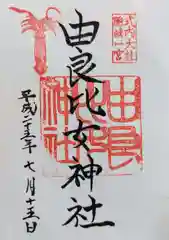 式内大社
隠岐一宮
由良比女神社
由良
神社
平成二十五年七月十五日